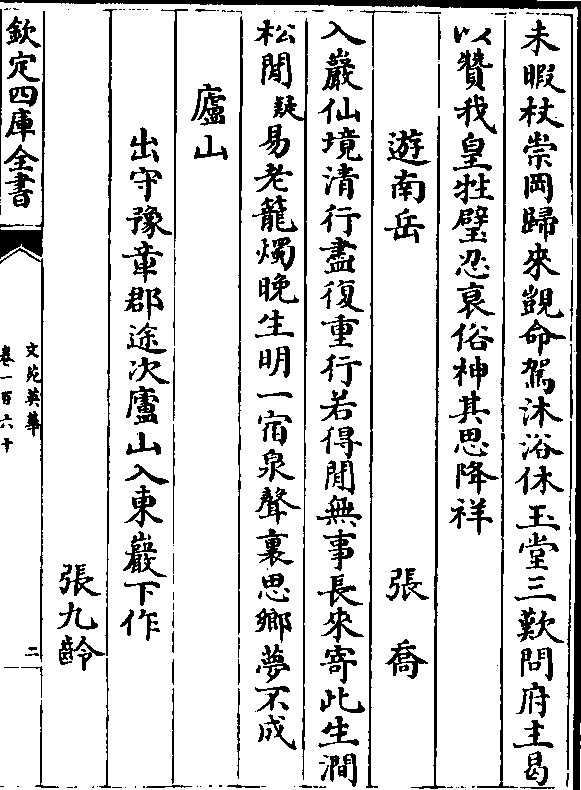 未暇杖崇岡歸來覬命駕沐浴休玉堂三歎問府主曷
以贊我皇牲璧忍衰俗神其思降祥
遊南岳
張喬
入巖仙境清行盡復重行若得閒無事長來寄此生澗
松閒疑易老籠燭晚生明一宿泉聲裏思鄉夢不成
廬山
出守豫章郡途次廬山入東巖下作
張九齡
欽定四庫全書
文苑英華
卷一百六十
二